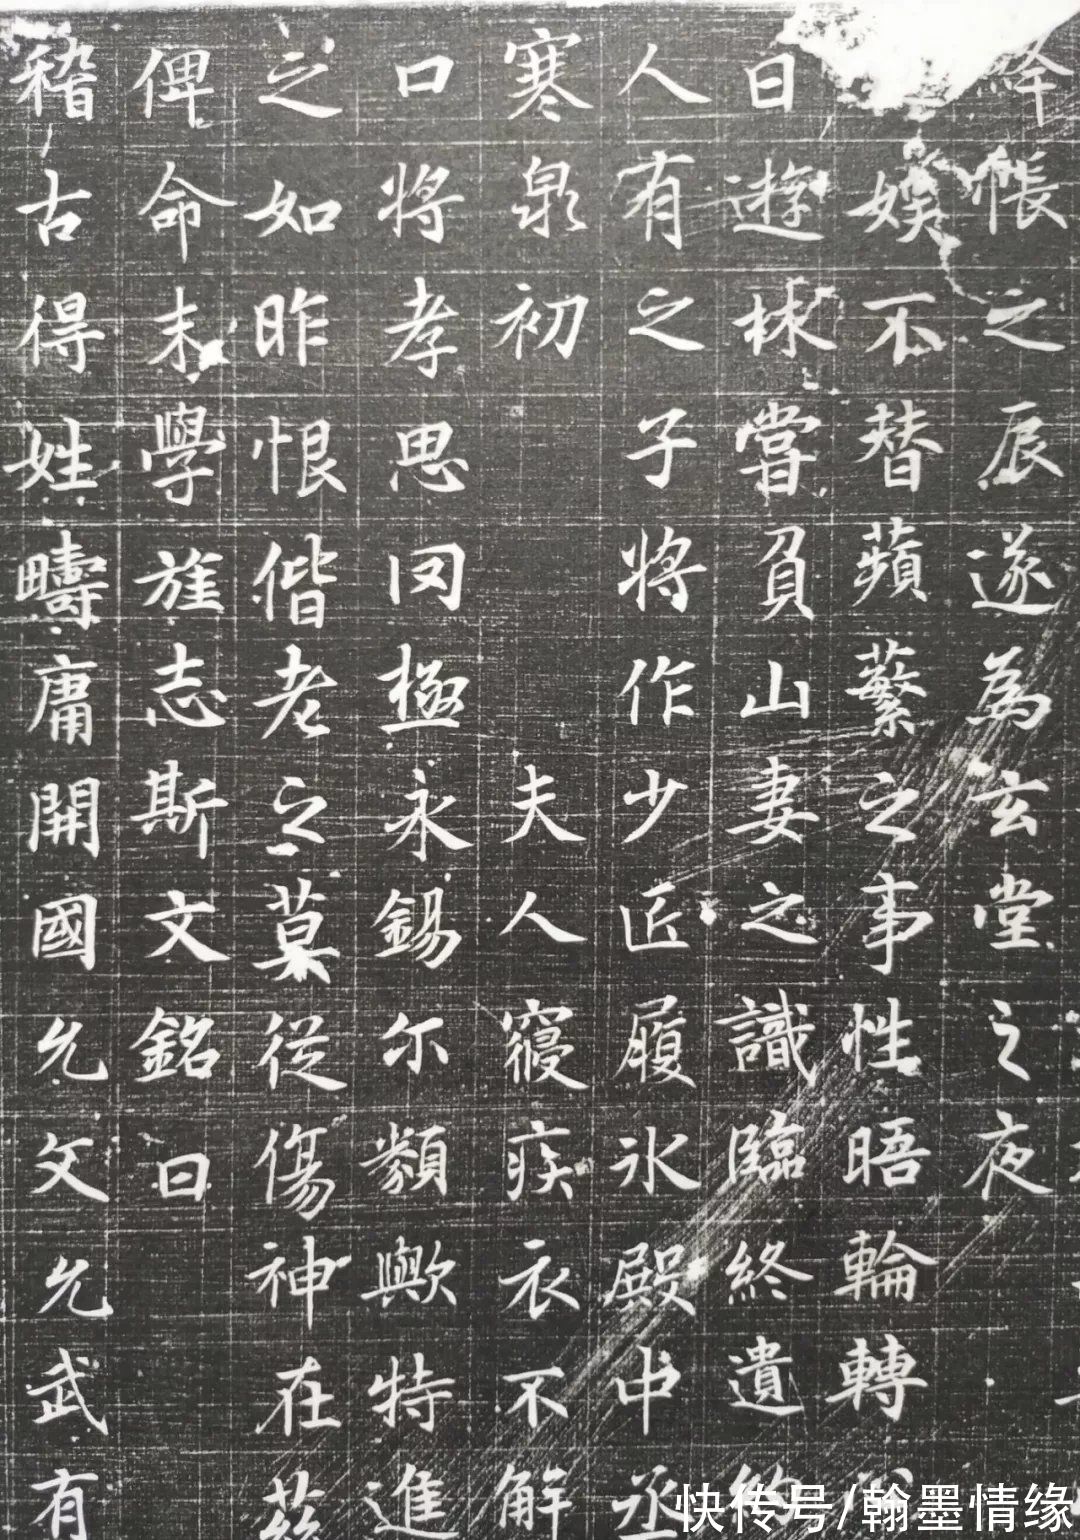 絳帳之辰遂為玄堂之夜
娛不替蘋蘩之事性晤輪轉
日遊林嘗負山妻之識臨終遺
人有之子將作少匠履氷殿中丞
寒泉初 夫人寢疾衣不解
口將孝思罔極永錫尔類歟特進
之如昨恨偕老之莫從傷神在茲
俾命末學旌志斯文銘曰
稽古得姓疇庸開國允文允武有
快传号/翰墨情缘